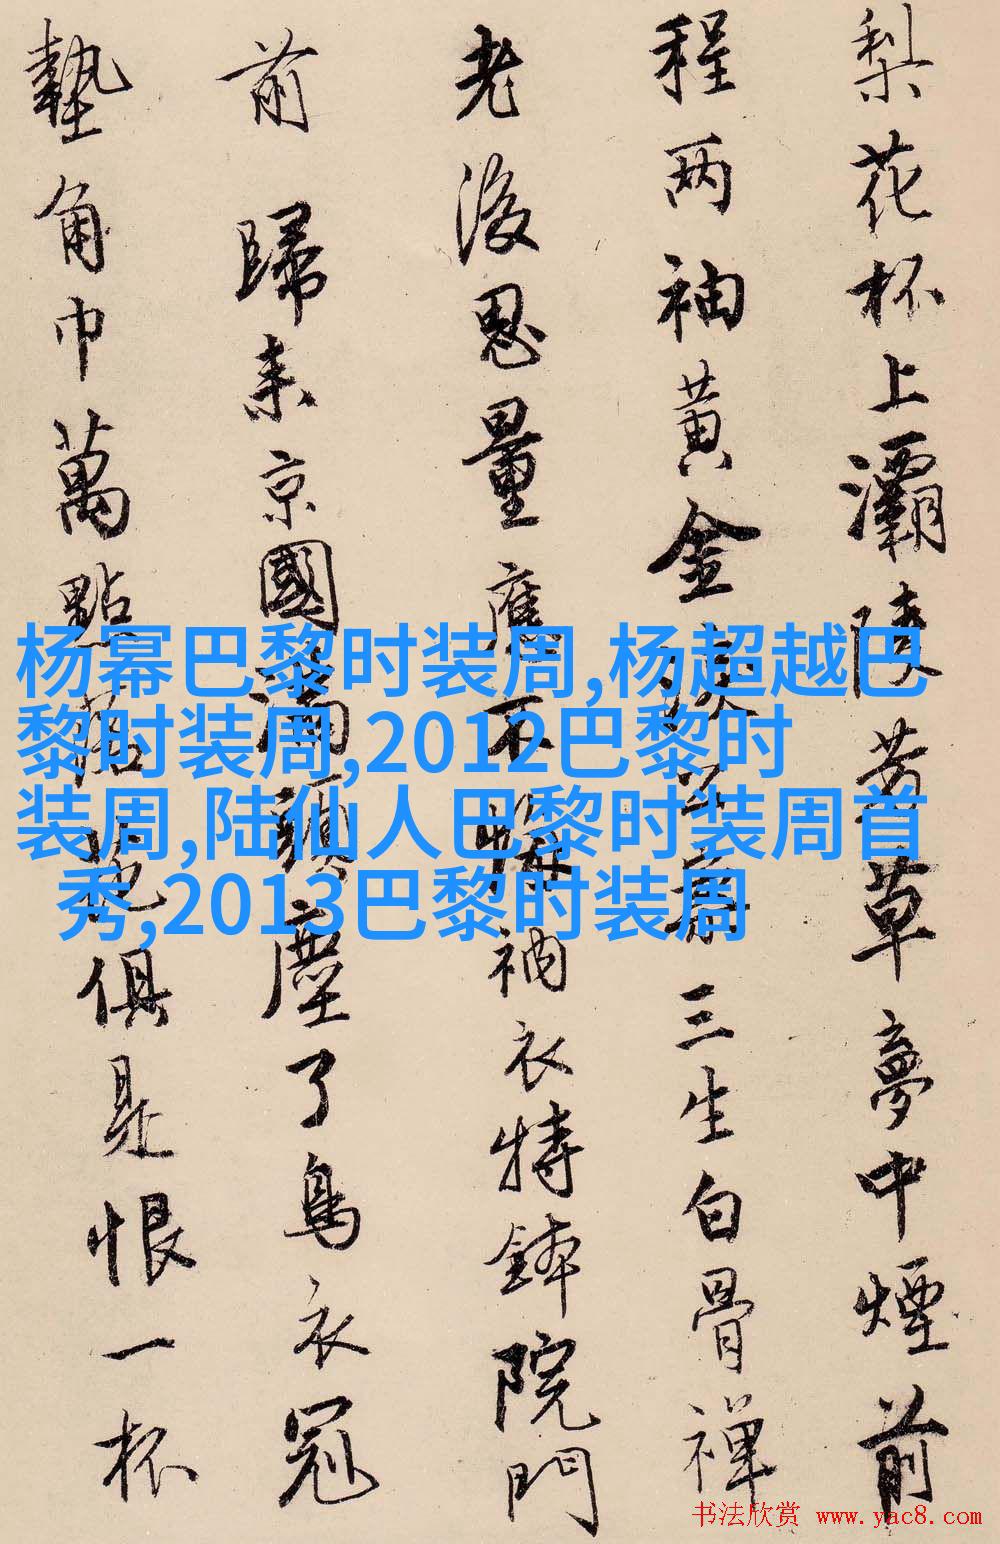 梨花杯上灞陵芳草夢中煙前
程两袖黄金淚公案三生白骨禪
老後思量應不悔衲衣持鉢院門
前 歸来京國滿頭塵了鳥衣冠
墊角巾萬點落花俱是恨一杯
杨幂巴黎时装周,杨超越巴
黎时装周,2012巴黎时
装周,陆仙人巴黎时装周首
秀,2013巴黎时装周
书法欣赏 www.yac8.com